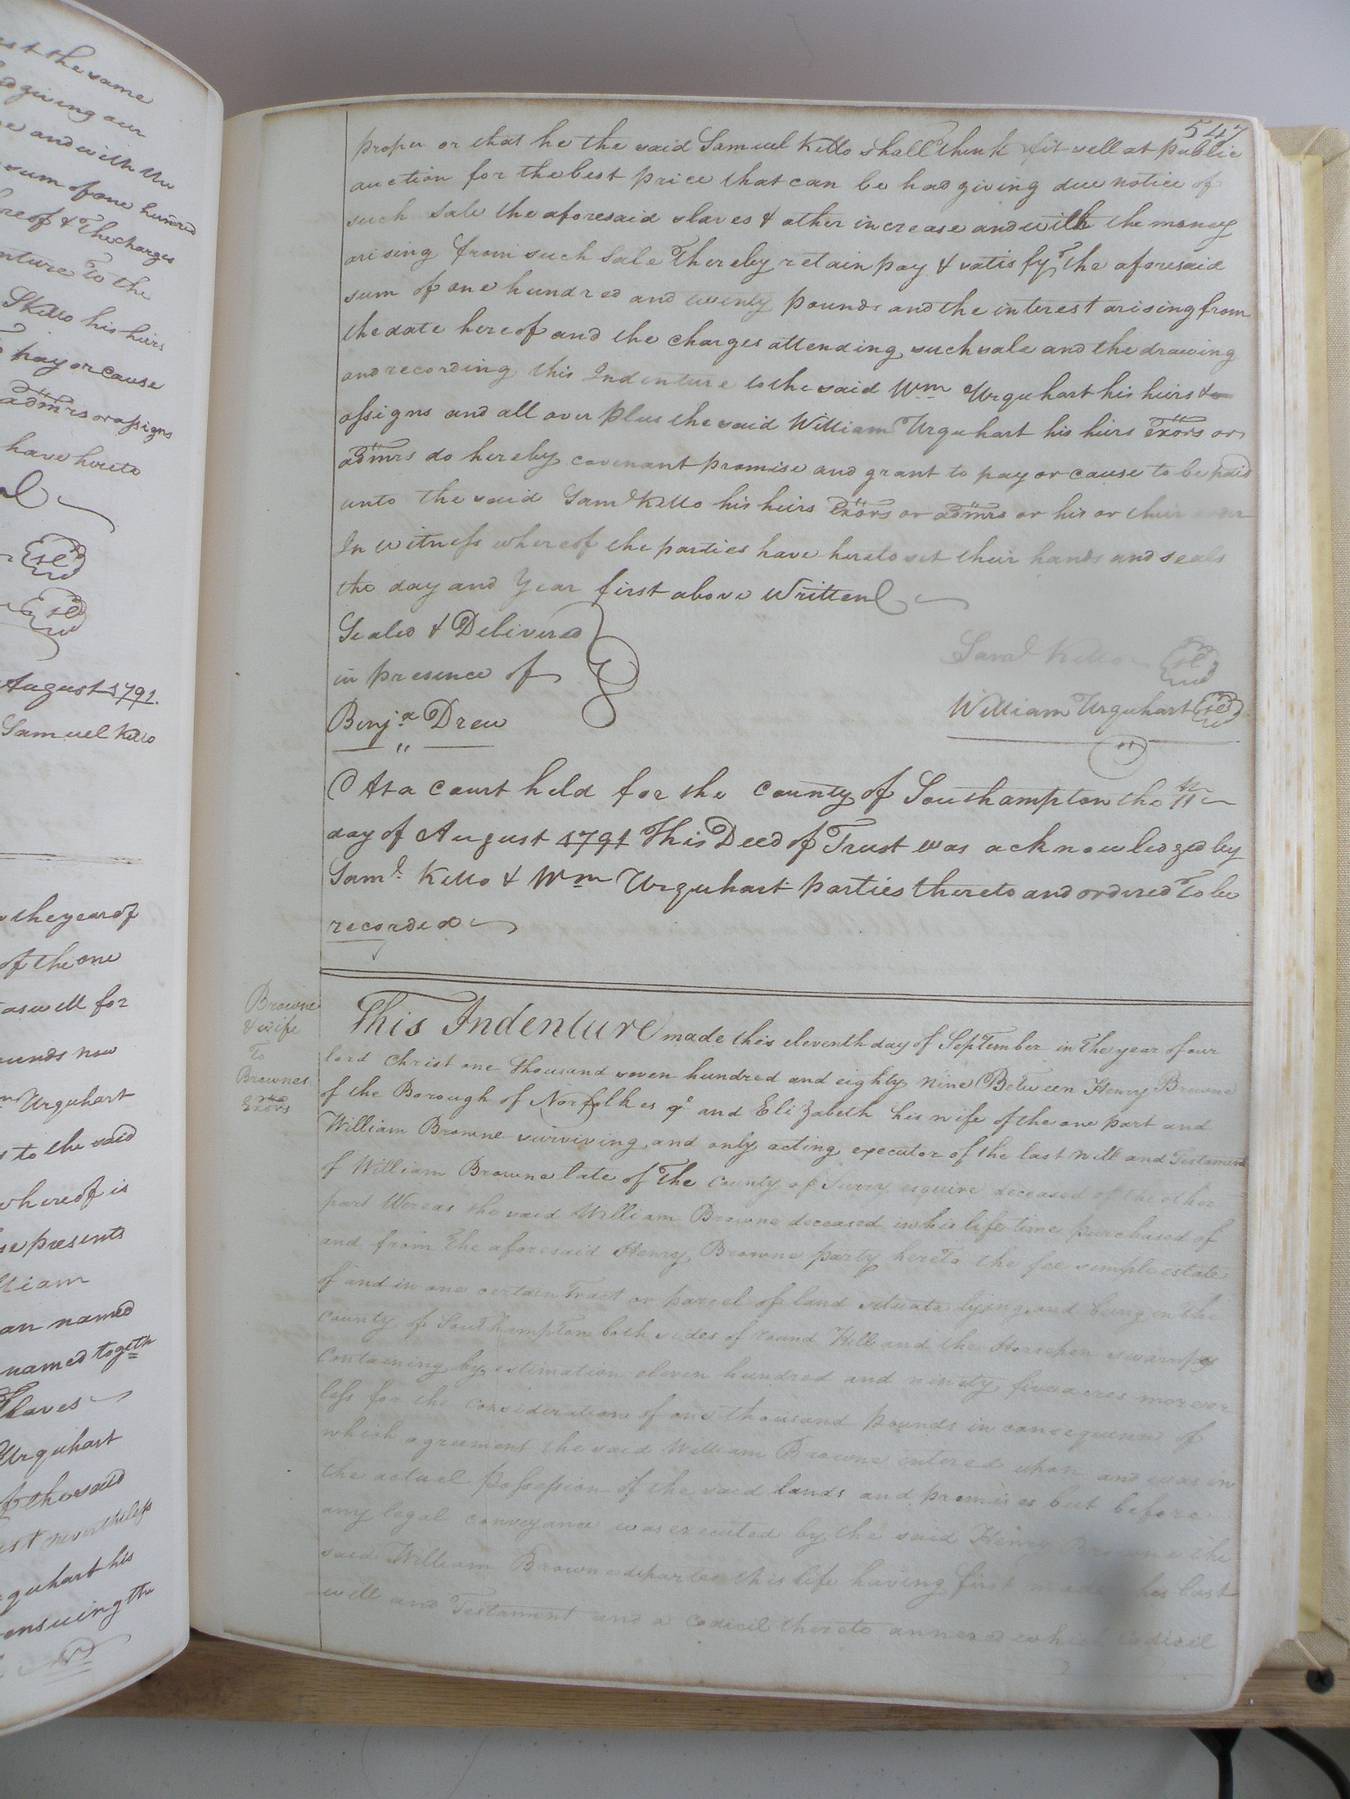 est the same
giving our
and with the
sum of one hundred
hereof & The charges
nture To the
Kello his heirs
pay or cause
adm̈rs or assigns
have hereto
al
August 1791.
Samuel Kello
the year of
of the one
as well for
pounds now
Urquhart
to the said
whereof is
se presents
lliam
an named
named togeth
Slaves
Urquhart
of the said
st nevertheless
rquhart his
ensuing the
547
proper or that he the said Samuel Kello shall think fit sell at public
auction for the best price that can be had giving due notice of
such Sale the aforesaid slaves & other increase and with the money
arising from such Sale Thereby retain pay & satisfy The aforesaid
sum of one hundred and twenty pounds and the interest arising from
the date hereof and the charges attending such sale and the drawing
and recording this Indenture to the said Wm Urquhart his heirs &
assigns and all over plus the said William Urquhart his heirs Exörs or
adm̈rs do hereby covenant promise and grant to pay or cause to be paid
unto the said Saml Kello his heirs Exörs or adm̈rs or his or their order
In witness whereof the parties have hereto set their hands and seals
the day and Year first above Written
Sealed & Delivered
in presence of
Benja Drew
Saml Kello
William Urquhart
At a Court held for the County of Southampton the 11th
day of August 1791 This Deed of Trust was acknowledged by
Saml. Kello & Wm Urquhart parties thereto and ordered To be
recorded
Browne
& wife
To
Brownes
Exors
This Indenture made this eleventh day of September in The year of our
lord Christ one Thousand seven hundred and eighty nine Between Henry Browne
of the Borough of Norfolk esqr and Elizabeth his wife of the one part and
William Browne surviving and only acting executor of the last will and Testament
of William Browne late of The County of Surry esquire deceased of the other
part Wereas the said William Browne deceased in his life time purchased of
and from The aforesaid Henry Browne party hereto the fee simple estate
of and in one certain Tract or parcel of land situate lying and being in the
County of Southampton both sides of round Hill and the Horsepen swamps
Containing by estimation eleven hundred and ninety five acres more or
less for the consideration of one thousand pounds in consequence of
which agreement the said William Browne entered upon and was in
the actual possession of the said lands and promises but before
any legal conveyance was executed by the said Henry Browne the
said William Browne departed this life having first made his last
will and Testament and a Codicil thereto annexed which Codicil